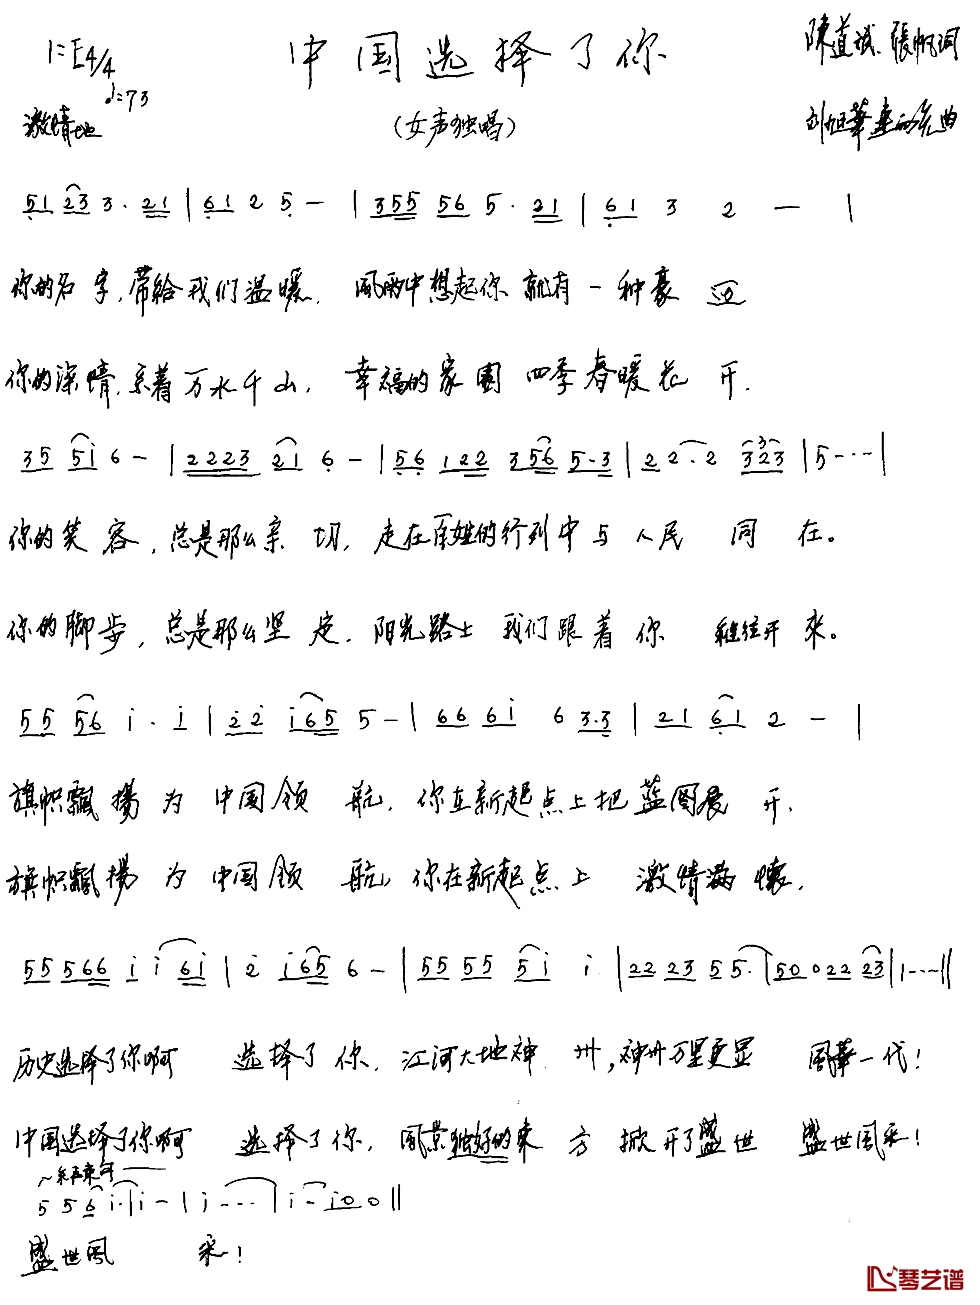 中国选择了你
1=E4/4
♩=73
陳道斌、張帆词
激情地
(女声独唱)
刘旭華 曲
51 23 3. 21 | 61 2 5 - | 355 56 5. 21 | 61 3 2 - |
你的名字,带给我们温暖. 風雨中想起你 就有一种豪迈
你的深情,系着万水千山, 幸福的家園 四季春暖花开.
35 5i 6 - | 2223 21 6 - | 56 122 356 5.3 | 2 2. 2 323 | 5 - - - |
你的笑容,总是那么亲切, 走在百姓的行列中与人民同在。
你的脚步,总是那么坚定. 阳光路上 我们跟着你 继往开来。
55 56 i. i | 2 2 i65 5 - | 66 6i 6 3.3 | 21 61 2 - |
旗帜飄揚为中国领航, 你在新起点上把蓝图展开.
旗帜飄揚为中国领航, 你在新起点上 激情满懷.
55 566 i i 6i | 2 i65 6 - | 55 55 5i i. | 22 23 5 5. | 50 022 23 | 1 - - - ||
历史选择了你啊 选择了你. 江河大地神州,神州万里更显 風華一代!
中国选择了你啊 选择了你, 風景独好的东方 掀开了盛世 盛世風采!
~结束句
5 5 6 i. | i - | i - - - | i - i 0 0 ||
盛世風采!
琴艺谱